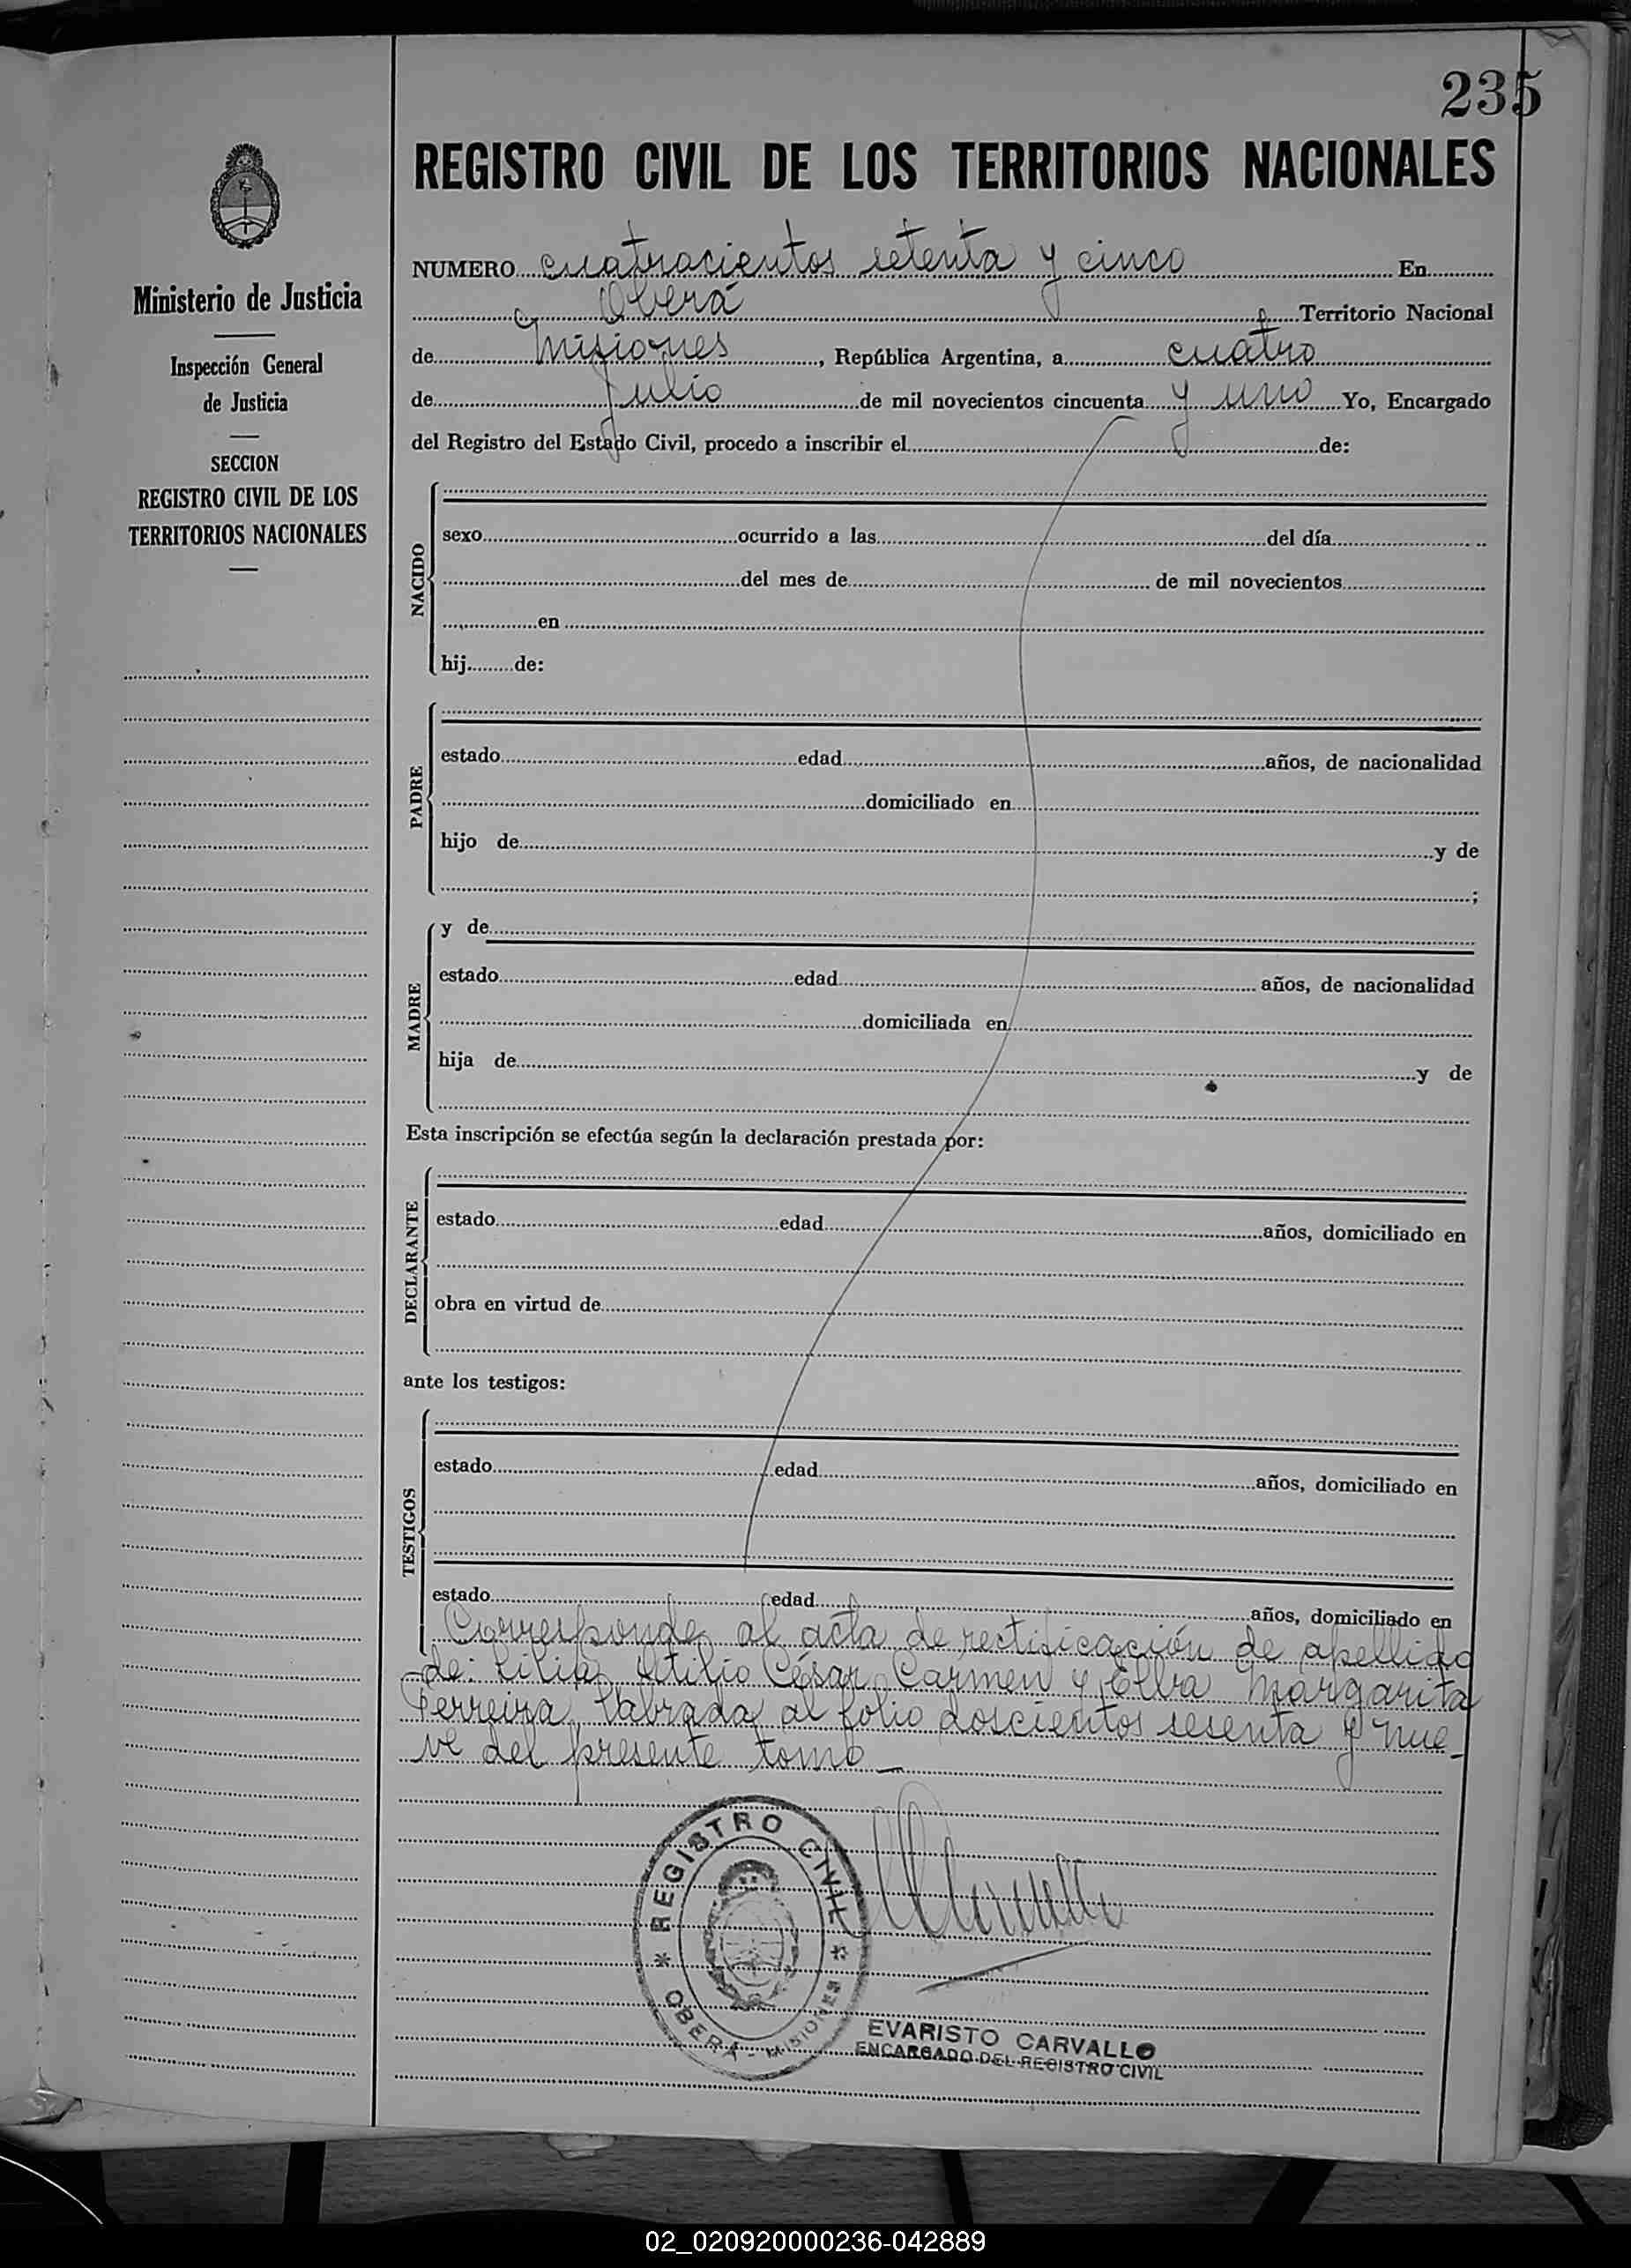 235
REGISTRO CIVIL DE LOS TERRITORIOS NACIONALES
Ministerio de Justicia
Inspección General
de Justicia
SECCION
REGISTRO CIVIL DE LOS
TERRITORIOS NACIONALES
NUMERO cuatrocientos setenta y cinco En
Oberá Territorio Nacional
de Misiones, República Argentina, a cuatro
de Julio de mil novecientos cincuenta y uno Yo, Encargado
del Registro del Estado Civil, procedo a inscribir el de:
NACIDO
sexo ocurrido a las del día
del mes de de mil novecientos
en
hij de:
PADRE
estado edad años, de nacionalidad
domiciliado en
hijo de y de
;
MADRE
y de
estado edad años, de nacionalidad
domiciliada en
hija de y de
Esta inscripción se efectúa según la declaración prestada por:
DECLARANTE
estado edad años, domiciliado en
obra en virtud de
ante los testigos:
TESTIGOS
estado edad años, domiciliado en
estado edad años, domiciliado en
Corresponde al acta de rectificación de apellido
de: Lilia, Atilio César, Carmen y Elba Margarita
Ferreira, labrada al folio doscientos sesenta y nue-
ve del presente tomo
REGISTRO CIVIL
OBERÁ - MISIONES
EVARISTO CARVALLO
ENCARGADO DEL REGISTRO CIVIL
02_020920000236-042889